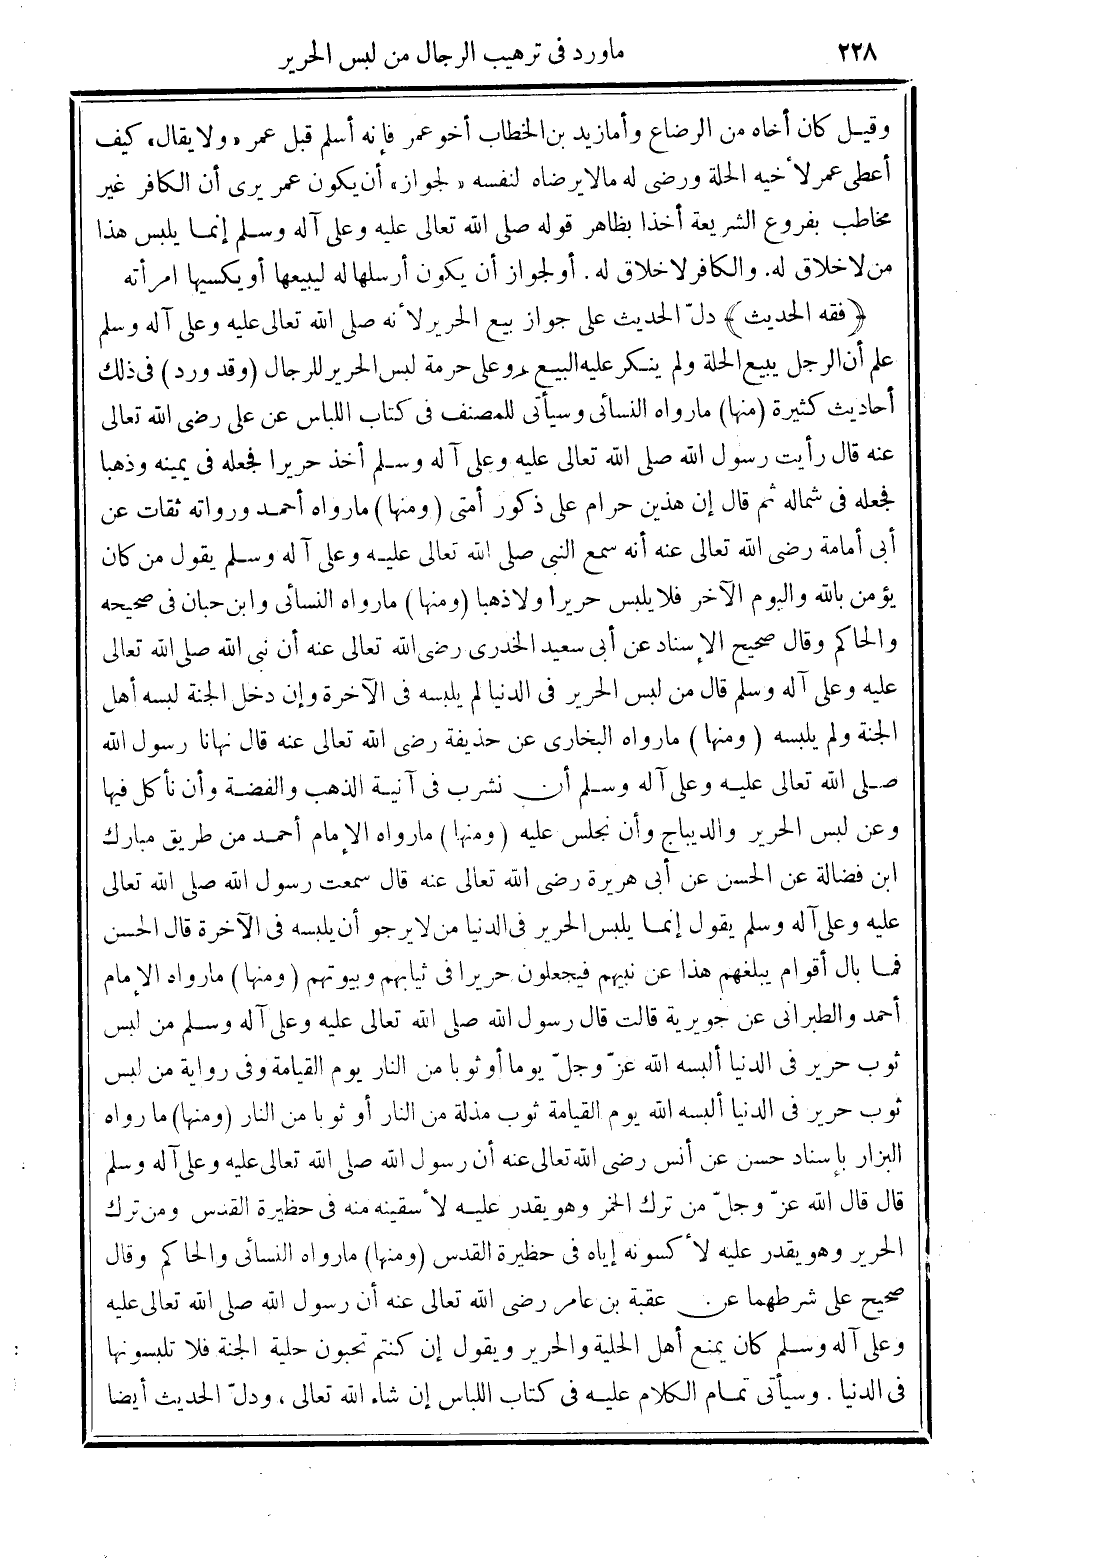 ٢٢٨
ماورد فى ترهيب الرجال من لبس الحرير
وقيل كان أخاه من الرضاع وأمازيد بن الخطاب أخو عمر فإنه أسلم قبل عمر «ولا يقال» كيف
أعطى عمر لأخيه الحلة ورضى له مالا يرضاه لنفسه «لجواز» أن يكون عمر يرى أن الكافر غير
مخاطب بفروع الشريعة أخذا بظاهر قوله صلى الله تعالى عليه وعلى آله وسلم إنما يلبس هذا
من لاخلاق له. والكافر لاخلاق له. أو لجواز أن يكون أرسلها له ليبيعها أو يكسيها امرأته
﴿فقه الحديث﴾ دلّ الحديث على جواز بيع الحرير لأنه صلى الله تعالى عليه وعلى آله وسلم
علم أن الرجل يبيع الحلة ولم ينكر عليه البيع، وعلى حرمة لبس الحرير للرجال (وقد ورد) فى ذلك
أحاديث كثيرة (منها) مارواه النسائى وسيأتى للمصنف فى كتاب اللباس عن على رضى الله تعالى
عنه قال رأيت رسول الله صلى الله تعالى عليه وعلى آله وسلم أخذ حريرا فجعله فى يمينه وذهبا
فجعله فى شماله ثم قال إن هذين حرام على ذكور أمتى (ومنها) مارواه أحمد ورواته ثقات عن
أبى أمامة رضى الله تعالى عنه أنه سمع النبى صلى الله تعالى عليه وعلى آله وسلم يقول من كان
يؤمن بالله واليوم الآخر فلا يلبس حريرا ولاذهبا (ومنها) مارواه النسائى وابن حبان فى صحيحه
والحاكم وقال صحيح الإسناد عن أبى سعيد الخدرى رضى الله تعالى عنه أن نبى الله صلى الله تعالى
عليه وعلى آله وسلم قال من لبس الحرير فى الدنيا لم يلبسه فى الآخرة وإن دخل الجنة لبسه أهل
الجنة ولم يلبسه (ومنها) مارواه البخارى عن حذيفة رضى الله تعالى عنه قال نهانا رسول الله
صلى الله تعالى عليه وعلى آله وسلم أن نشرب فى آنية الذهب والفضة وأن نأكل فيها
وعن لبس الحرير والديباج وأن نجلس عليه (ومنها) مارواه الإمام أحمد من طريق مبارك
ابن فضالة عن الحسن عن أبى هريرة رضى الله تعالى عنه قال سمعت رسول الله صلى الله تعالى
عليه وعلى آله وسلم يقول إنما يلبس الحرير فى الدنيا من لايرجو أن يلبسه فى الآخرة قال الحسن
فما بال أقوام يبلغهم هذا عن نبيهم فيجعلون حريرا فى ثيابهم وبيوتهم (ومنها) مارواه الإمام
أحمد والطبرانى عن جويرية قالت قال رسول الله صلى الله تعالى عليه وعلى آله وسلم من لبس
ثوب حرير فى الدنيا ألبسه الله عزّ وجلّ يوما أو ثوبا من النار يوم القيامة وفى رواية من لبس
ثوب حرير فى الدنيا ألبسه الله يوم القيامة ثوب مذلة من النار أو ثوبا من النار (ومنها) ما رواه
البزار بإسناد حسن عن أنس رضى الله تعالى عنه أن رسول الله صلى الله تعالى عليه وعلى آله وسلم
قال قال الله عزّ وجلّ من ترك الخمر وهو يقدر عليه لأسقينه منه فى حظيرة القدس ومن ترك
الحرير وهو يقدر عليه لأكسونه إياه فى حظيرة القدس (ومنها) مارواه النسائى والحاكم وقال
صحيح على شرطهما عن عقبة بن عامر رضى الله تعالى عنه أن رسول الله صلى الله تعالى عليه
وعلى آله وسلم كان يمنع أهل الحلية والحرير ويقول إن كنتم تحبون حلية الجنة فلا تلبسونها
فى الدنيا. وسيأتى تمام الكلام عليه فى كتاب اللباس إن شاء الله تعالى، ودلّ الحديث أيضا